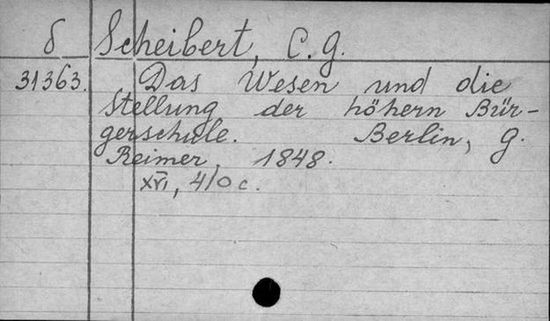 δ Scheibert, C. G.
31363. Das Wesen und die
Stellung der höhern Bür-
gerschule. Berlin, G.
Reimer, 1848.
XVI, 410 c.